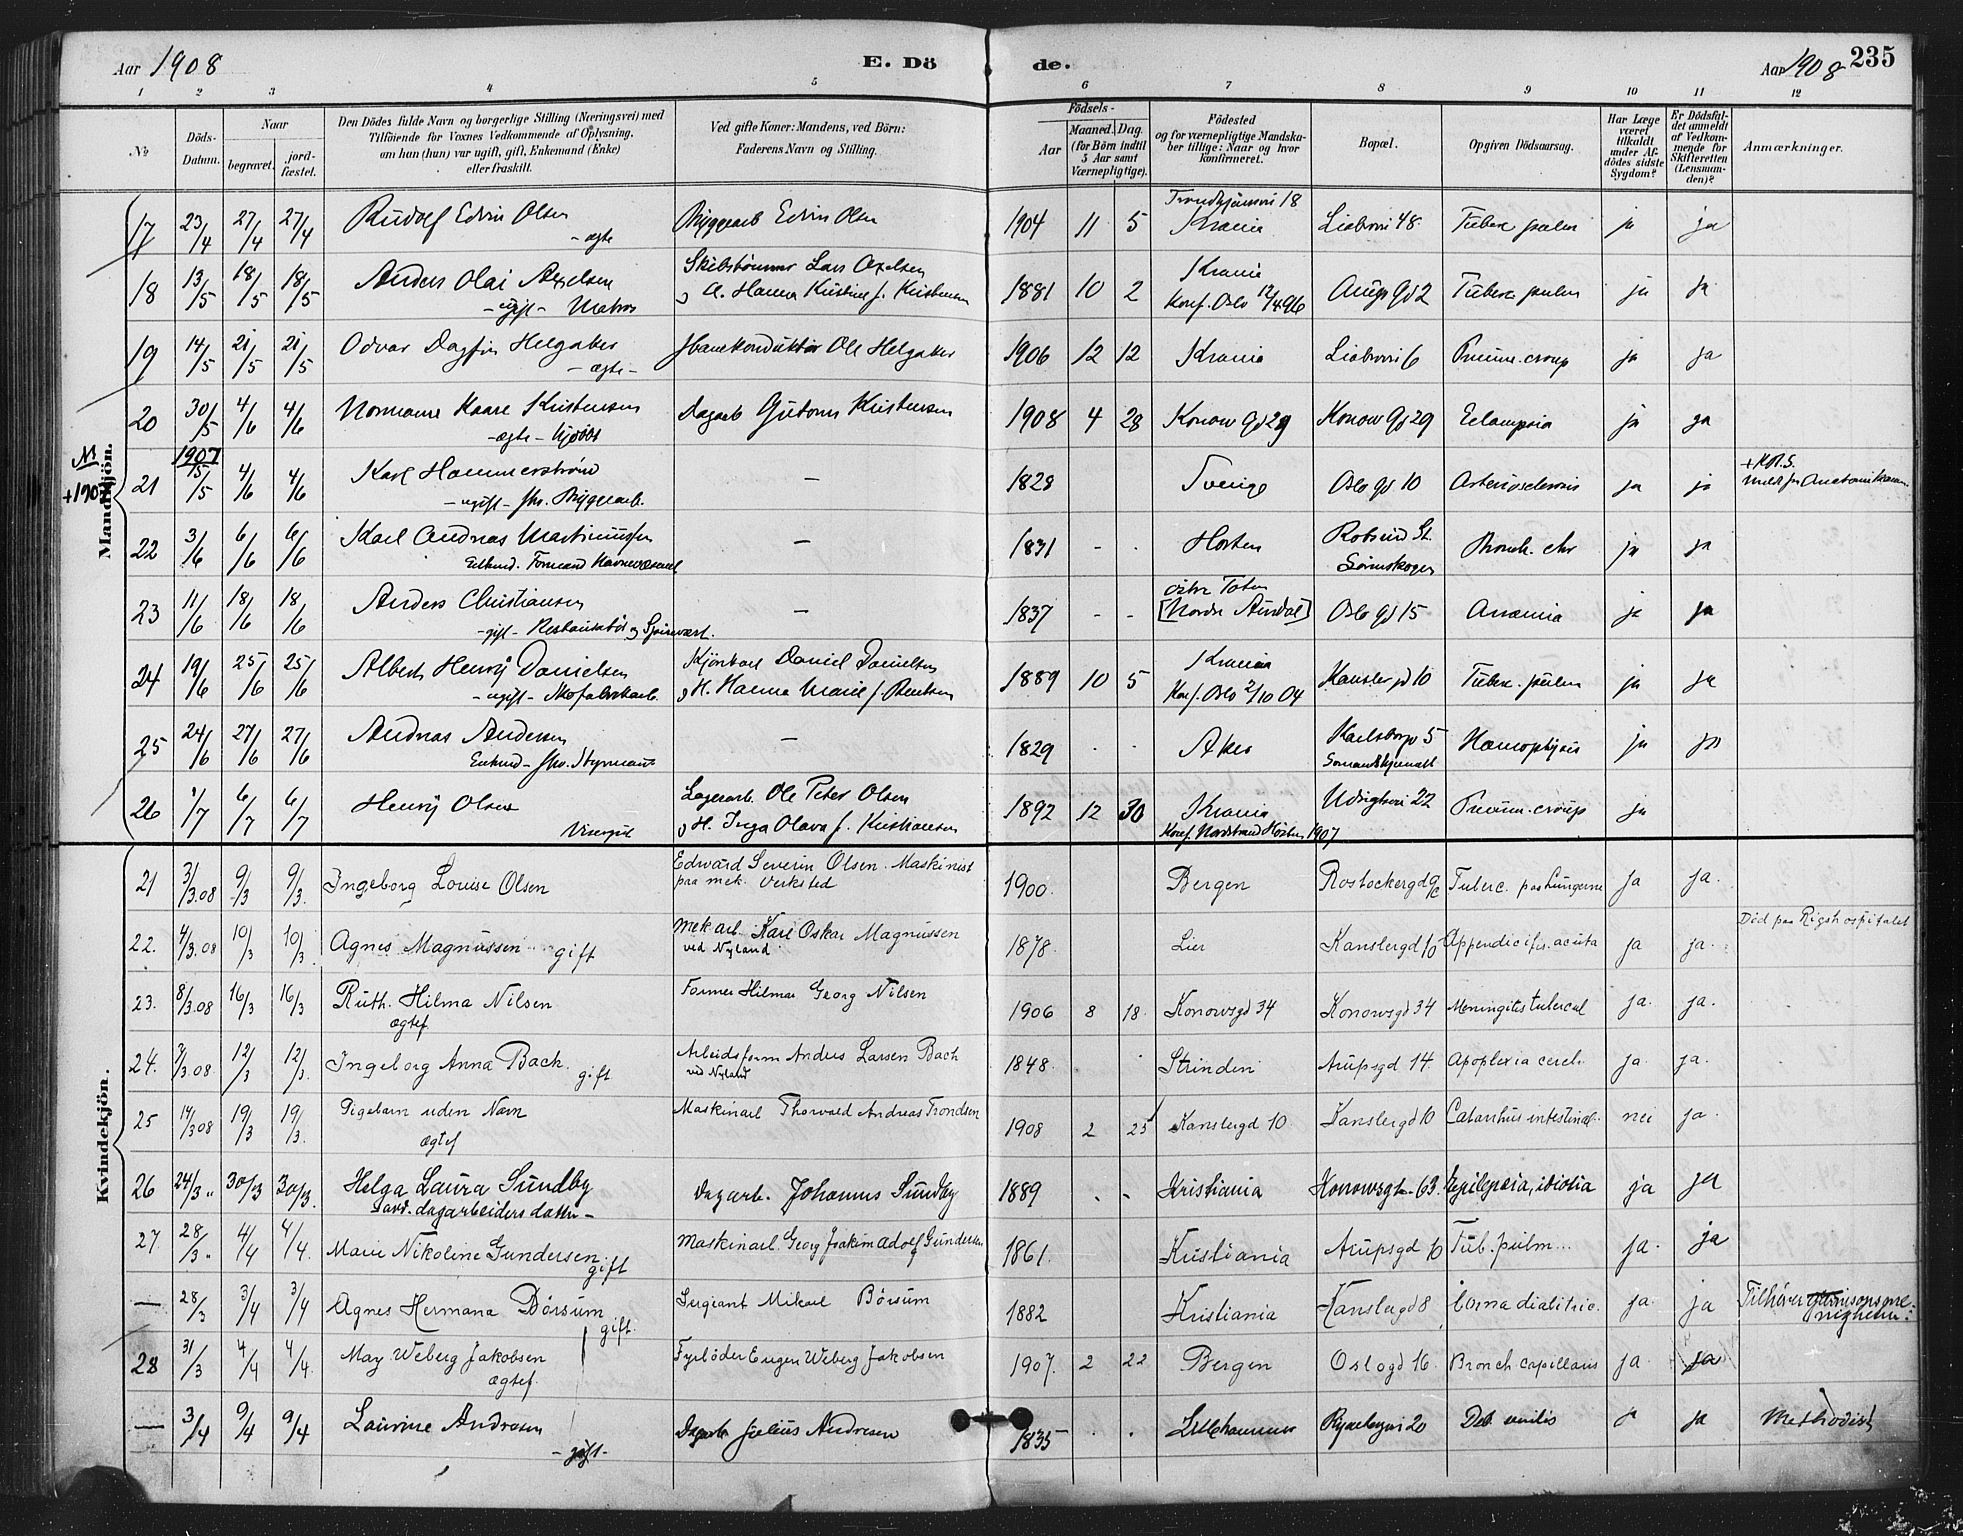 Aar 1908
E. Döde.
Aar 1908 235
1 2 3 4 5 6 7 8 9 10 11 12
No
Döds-Datum.
Naar begravet. jordfæstet.
Den Dödes fulde Navn og borgerlige Stilling (Næringsvei) med
Tilföiende for Voxnes Vedkommende af Oplysning,
om han (hun) var ugift, gift, Enkemand (Enke)
eller fraskilt.
Ved gifte Koner: Mandens, ved Börn:
Faderens Navn og Stilling.
Födsels-
Aar Maaned. Dag.
(for Börn indtil 5 Aar samt Værnepligtige).
Födested
og for værnepligtige Mandskaber tillige: Naar og hvor konfirmeret.
Bopæl.
Opgiven Dödsaarsag.
Har Læge været tilkaldt under Afdödes sidste Sygdom?
Er Dödsfaldet anmeldt af Vedkommende for Skifteretten (Lensmanden)?
Anmærkninger.
Mandkjön.
17 23/4 27/4 27/4 Rudolf Edvin Olsen - ægte Byggearb Edvin Olsen 1904 11 5 18 Krania 48 Tuberc pulm ja ja
18 13/5 18/5 18/5 Anders Olai Axelsen - ugift - Matros Lars Axelsen 1881 10 2 Krania Konf. Oslo 12/4 96 Arups gd 2 Tuberc pulm ja ja
19 14/5 21/5 21/5 Odvar Dagfin Helgaker - ægte - Ole Helgaker 1906 12 12 Krania 6 Pneum. croup ja ja
20 30/5 4/6 4/6 Kaare Kristensen - ægte - Dagarb Kristensen 1908 4 28 Konow gd 29 Konow gd 29 Eclampsia ja ja
21 1907 15/5 4/6 4/6 Karl Hammerstrøm - ugift - fhv. Byggearb. - 1828 Sverige Oslo gd 10 Arteriosclerosis ja ja
22 3/6 6/6 6/6 Karl Andreas Martinussen Enkmd. Formand Havnevæsenet - 1831 - - Horten ja ja
23 11/6 18/6 18/6 Anders Christiansen - gift - - 1837 - - østre Toten [Nordre Aurdal] Oslo gd 15 Anæmia ja ja
24 19/6 25/6 25/6 Albert Henry Danielsen - ugift - Skofabrikarb. Daniel Danielsen H. Hanna Marie f. 1889 10 5 Krania Konf. Oslo 2/10 04 Kansler gd 10 Tuberc. pulm ja ja
25 24/6 27/6 27/6 Andreas Andersen Enkmd - fhv. Styrmand - 1829 Aker Karlsborgv 5 Hæmoptysis ja ja
26 1/7 6/7 6/7 Henry Olsen Visergut Lagerarb. Ole Peter Olsen H. Inga Olava f. Kristiansen 1892 12 30 Krania Konf. Nordstrand Høsten 1907 22 Pneum. croup ja
Kvindekjön.
21 3/3.08 9/3 9/3. Ingeborg Louise Olsen Edward Severin Olsen. Maskinist paa mek. Verksted 1900. Bergen Rostockergd Tuberc. pas Lungerne ja ja.
22. 4/3.08 10/3 10/3 Agnes Magnussen gift Mek arb. Karl Oskar Magnussen ved Nyland 1878. Lier Kanslergd 10 Appendicitis. acuta ja ja. Död paa Rigshospitalet
23. 8/3.08 16/3 16/3 Ruth. Hilma Nilsen ægtef Former Hilmar Georg Nilsen 1906 8 18. Konowsgd 34 Konowsgd 34 Meningitis tubercul ja. ja.
24. 7/3.08. 12/3 12/3. Ingeborg Anna Bach. gift Arbeidsform Anders Larsen Bach ved Nyland 1848. Strinden Arupsgd 14. Apoplexia cereb. ja. ja.
25 14/3 08 19/3 19/3. Pigebarn uden Navn ægtef Maskinarb Thorvald Andreas Trondsen 1908 2 25 Kanslergd 10. Kanslergd 10 Catarrhus intestinal. nei ja.
26 24/3 " 30/3 30/3. Helga Laura Sundby dagarbeiders datter - Dagarb. Johannes Sundby 1889 - - Kristiania Konowsgt. 63. Epilepsia, idiotia ja ja
27. 28/3 " 4/4 4/4. Marie Nikoline Gundersen gift Maskinarb. Georg Joakim Adolf Gundersen 1861. Kristiania Arupsgd 10 Tub. pulm... ja. ja
— 28/3 3/4 3/4 Agnes Hermana Börsum gift. Sergeant Mikael Börsum 1882 Kristiania Kanslergd 8 Coma diabetic. ja. ja Tilhörer Garnisonsmenigheten.
28 31/3 4/4 4/4. May Weberg Jakobsen ægtef. Fyrböder Eugen Weberg Jakobsen 1907. 2 22 Bergen Oslogd 16. Bronch capillaris ja. ja
— 3/4 9/4 9/4 Laurine Andresen - gift - Dagarb Julius Andresen 1835 Lillehammer 20 Deb senilis ja ja Methodist